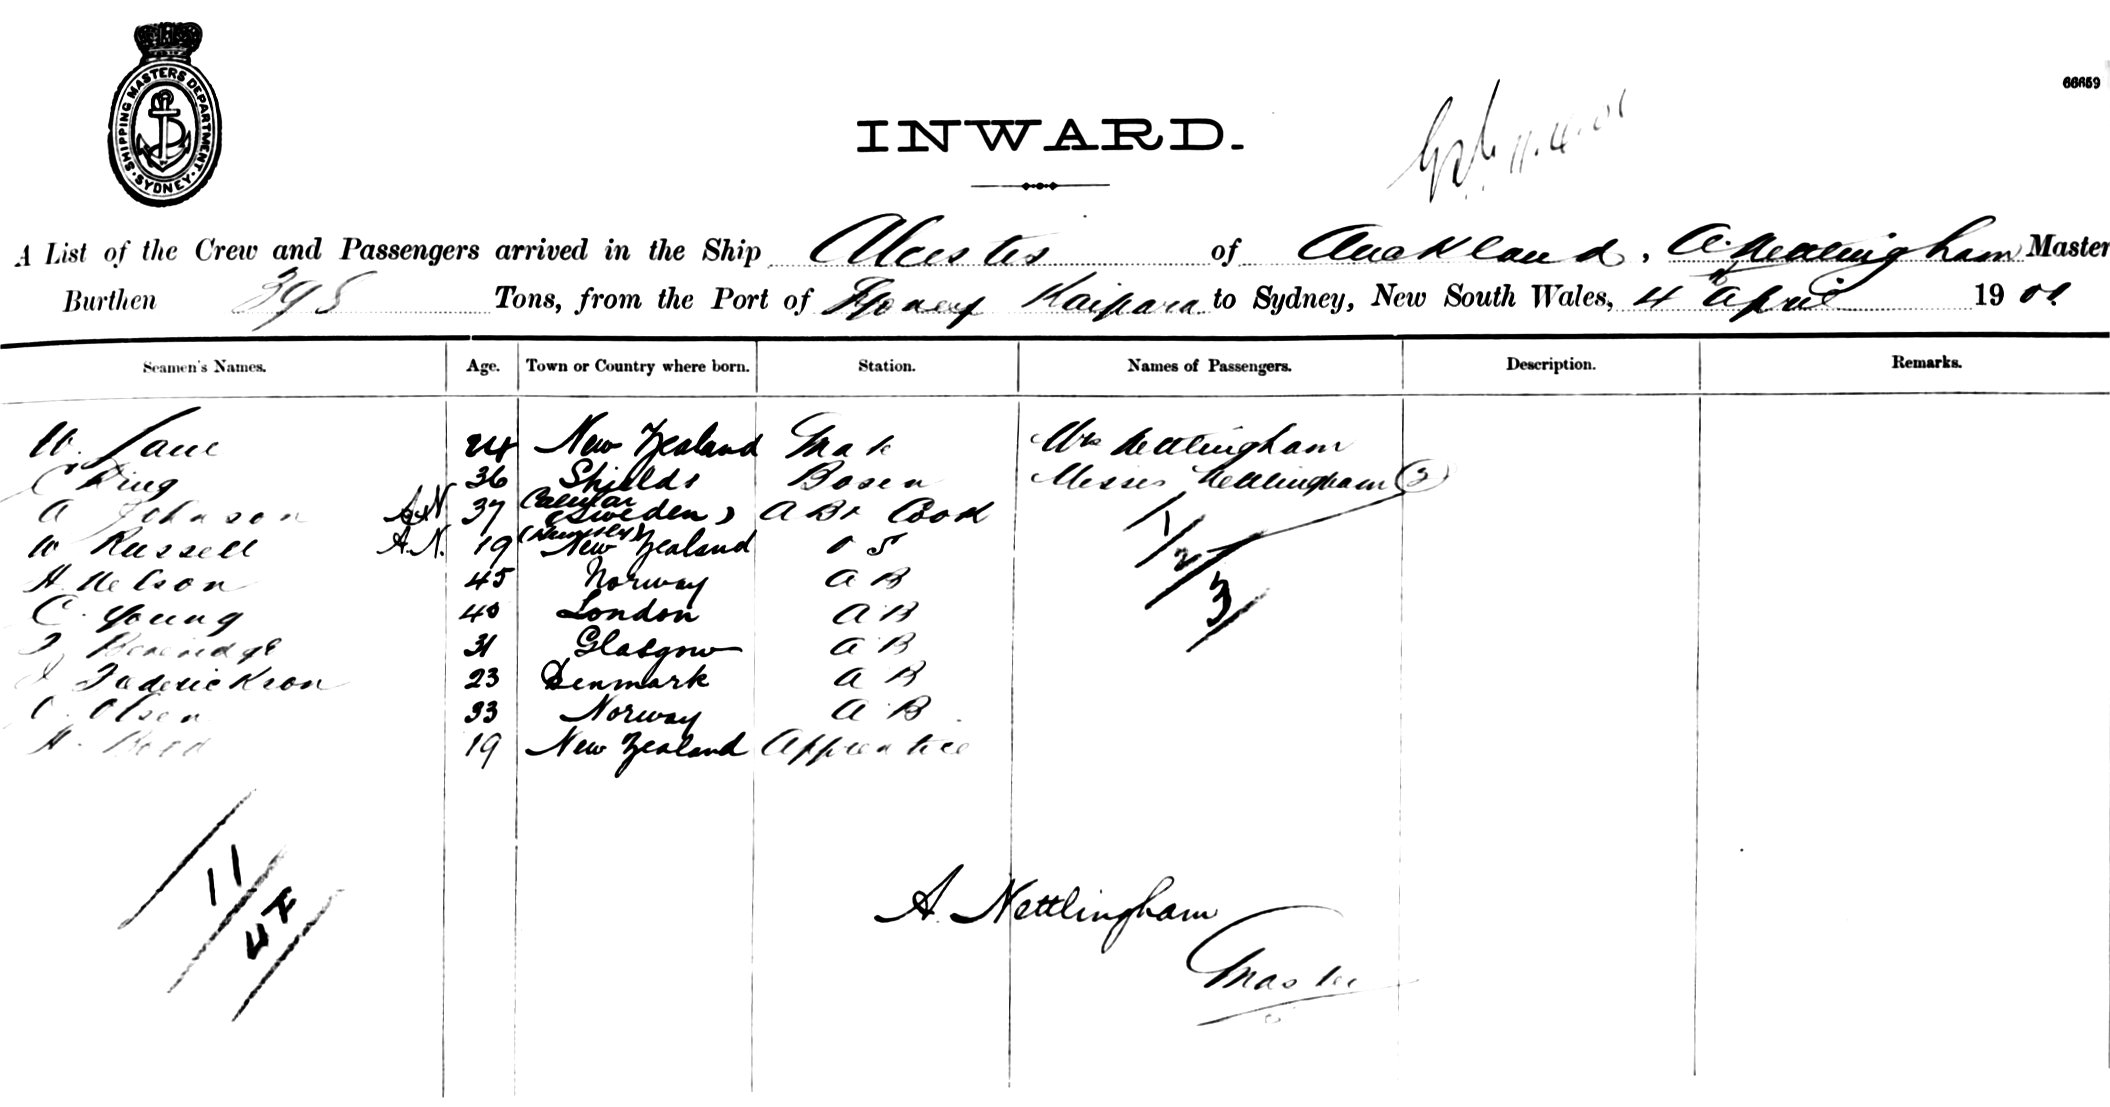 SHIPPING MASTERS DEPARTMENT · SYDNEY ·
66659
INWARD.
11.4.01
A List of the Crew and Passengers arrived in the Ship Alcestis of Auckland, A. Nettlingham Master
Burthen 395 Tons, from the Port of Kaipara to Sydney, New South Wales, 4th April 1901.
Seamen's Names. Age. Town or Country where born. Station. Names of Passengers. Description. Remarks.
W. Lane 24 New Zealand Mate Mrs Nettlingham
C King 36 Shields Bosen Misses Nettlingham (2)
A Johnson 37 Calmar (Sweden) A B & Cook
W Russell A.N. 19 New Zealand O S
H. Nelson 45 Norway A B
C. Young 40 London A B
Beveridge 31 Glasgow A B
Frederickson 23 Denmark A B
O. Olsen 33 Norway A B
H. 19 New Zealand Apprentice
1
2
3
11
4
A. Nettlingham
Master